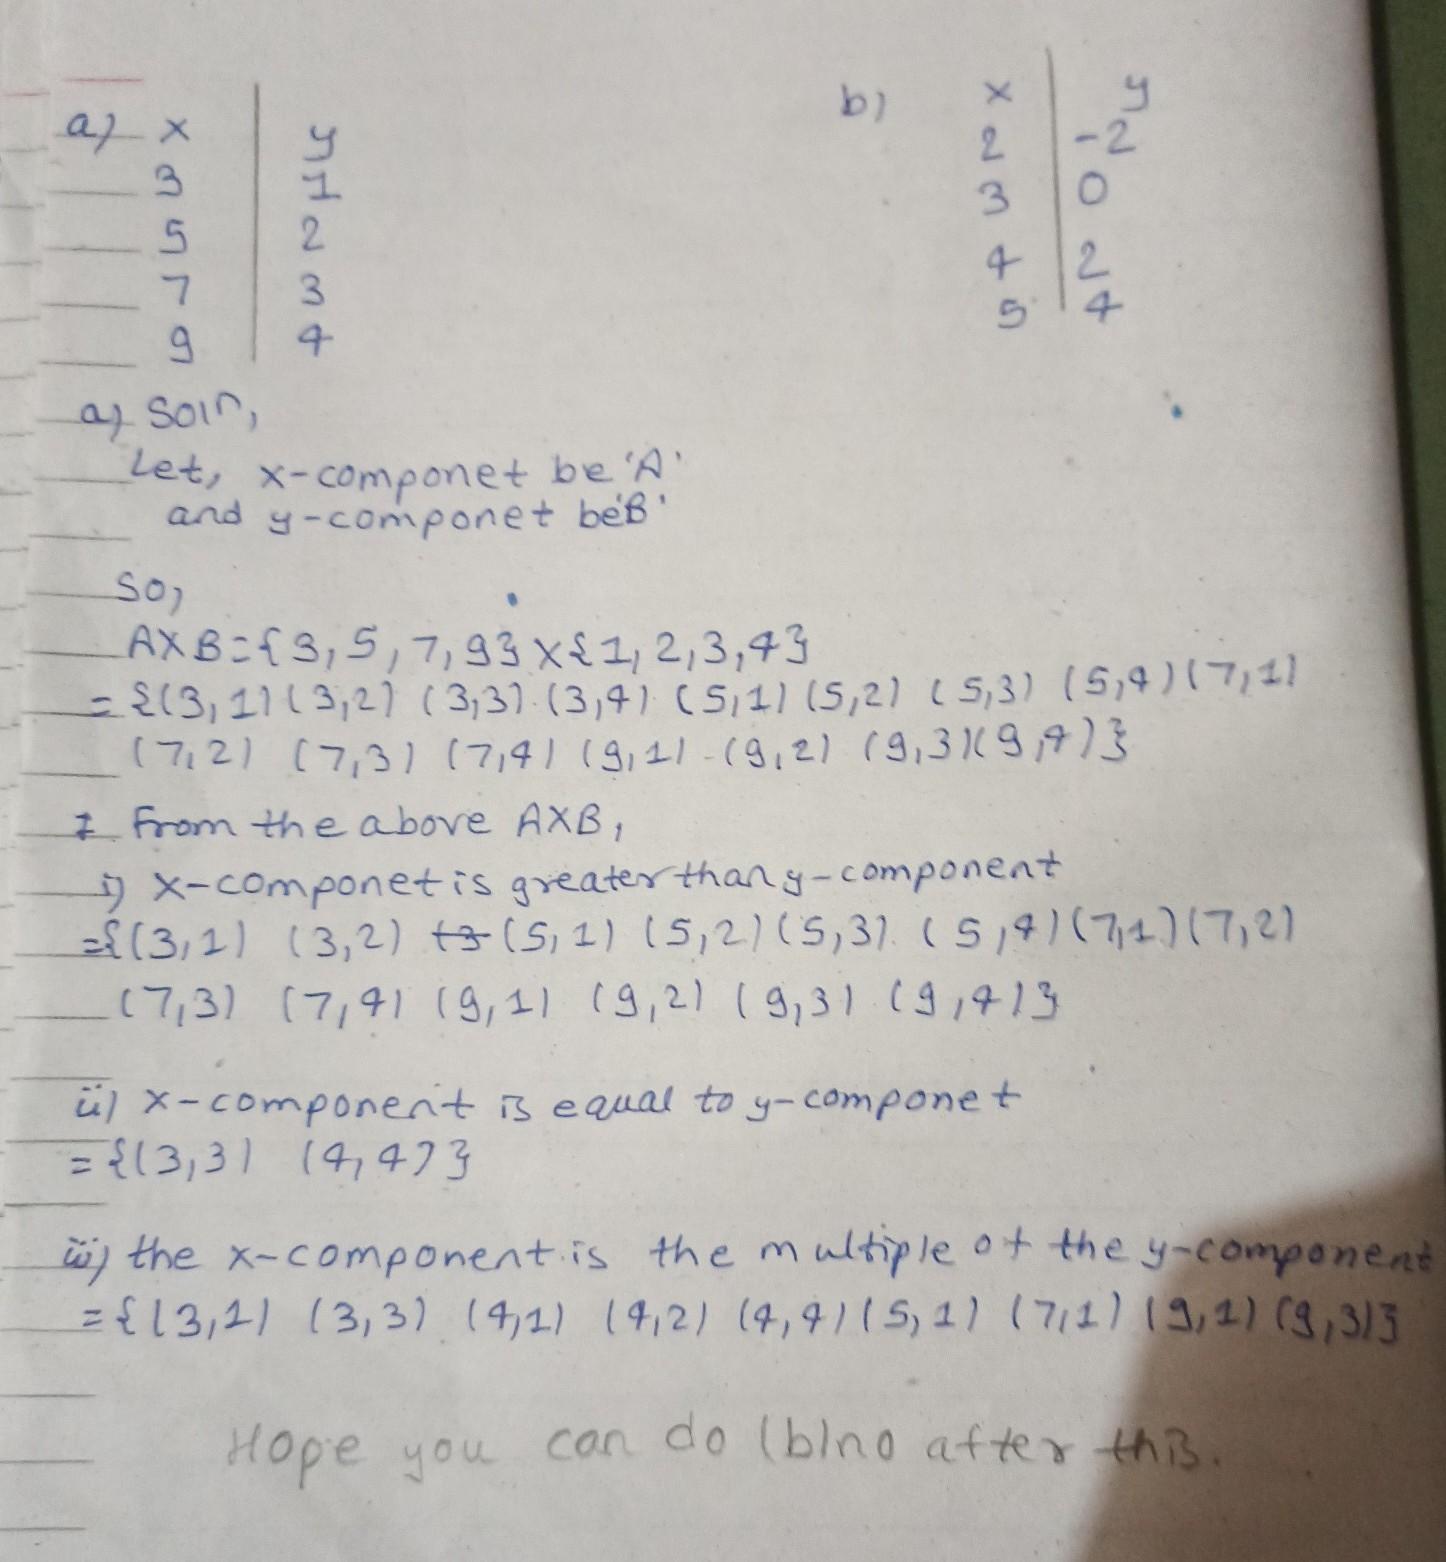 a) x | y
3 | 1
5 | 2
7 | 3
9 | 4
b) x | y
2 | -2
3 | 0
4 | 2
5 | 4
a) Soln,
Let, x-componet be 'A'
and y-componet be 'B'
So,
AXB={3,5,7,9}X{1,2,3,4}
={(3,1)(3,2) (3,3) (3,4) (5,1)(5,2) (5,3) (5,4)(7,1)
(7,2) (7,3) (7,4) (9,1) (9,2) (9,3)(9,4)}
From the above AXB,
i) x-componet is greater than y-component
={(3,1) (3,2) (5,1) (5,2)(5,3) (5,4)(7,1)(7,2)
(7,3) (7,4) (9,1) (9,2) (9,3) (9,4)}
ii) x-component is equal to y-componet
={(3,3) (4,4)}
iii) the x-component is the multiple of the y-component
={(3,1) (3,3) (4,1) (4,2) (4,4)(5,1) (7,1) (9,1) (9,3)}
Hope you can do (b)no after this.